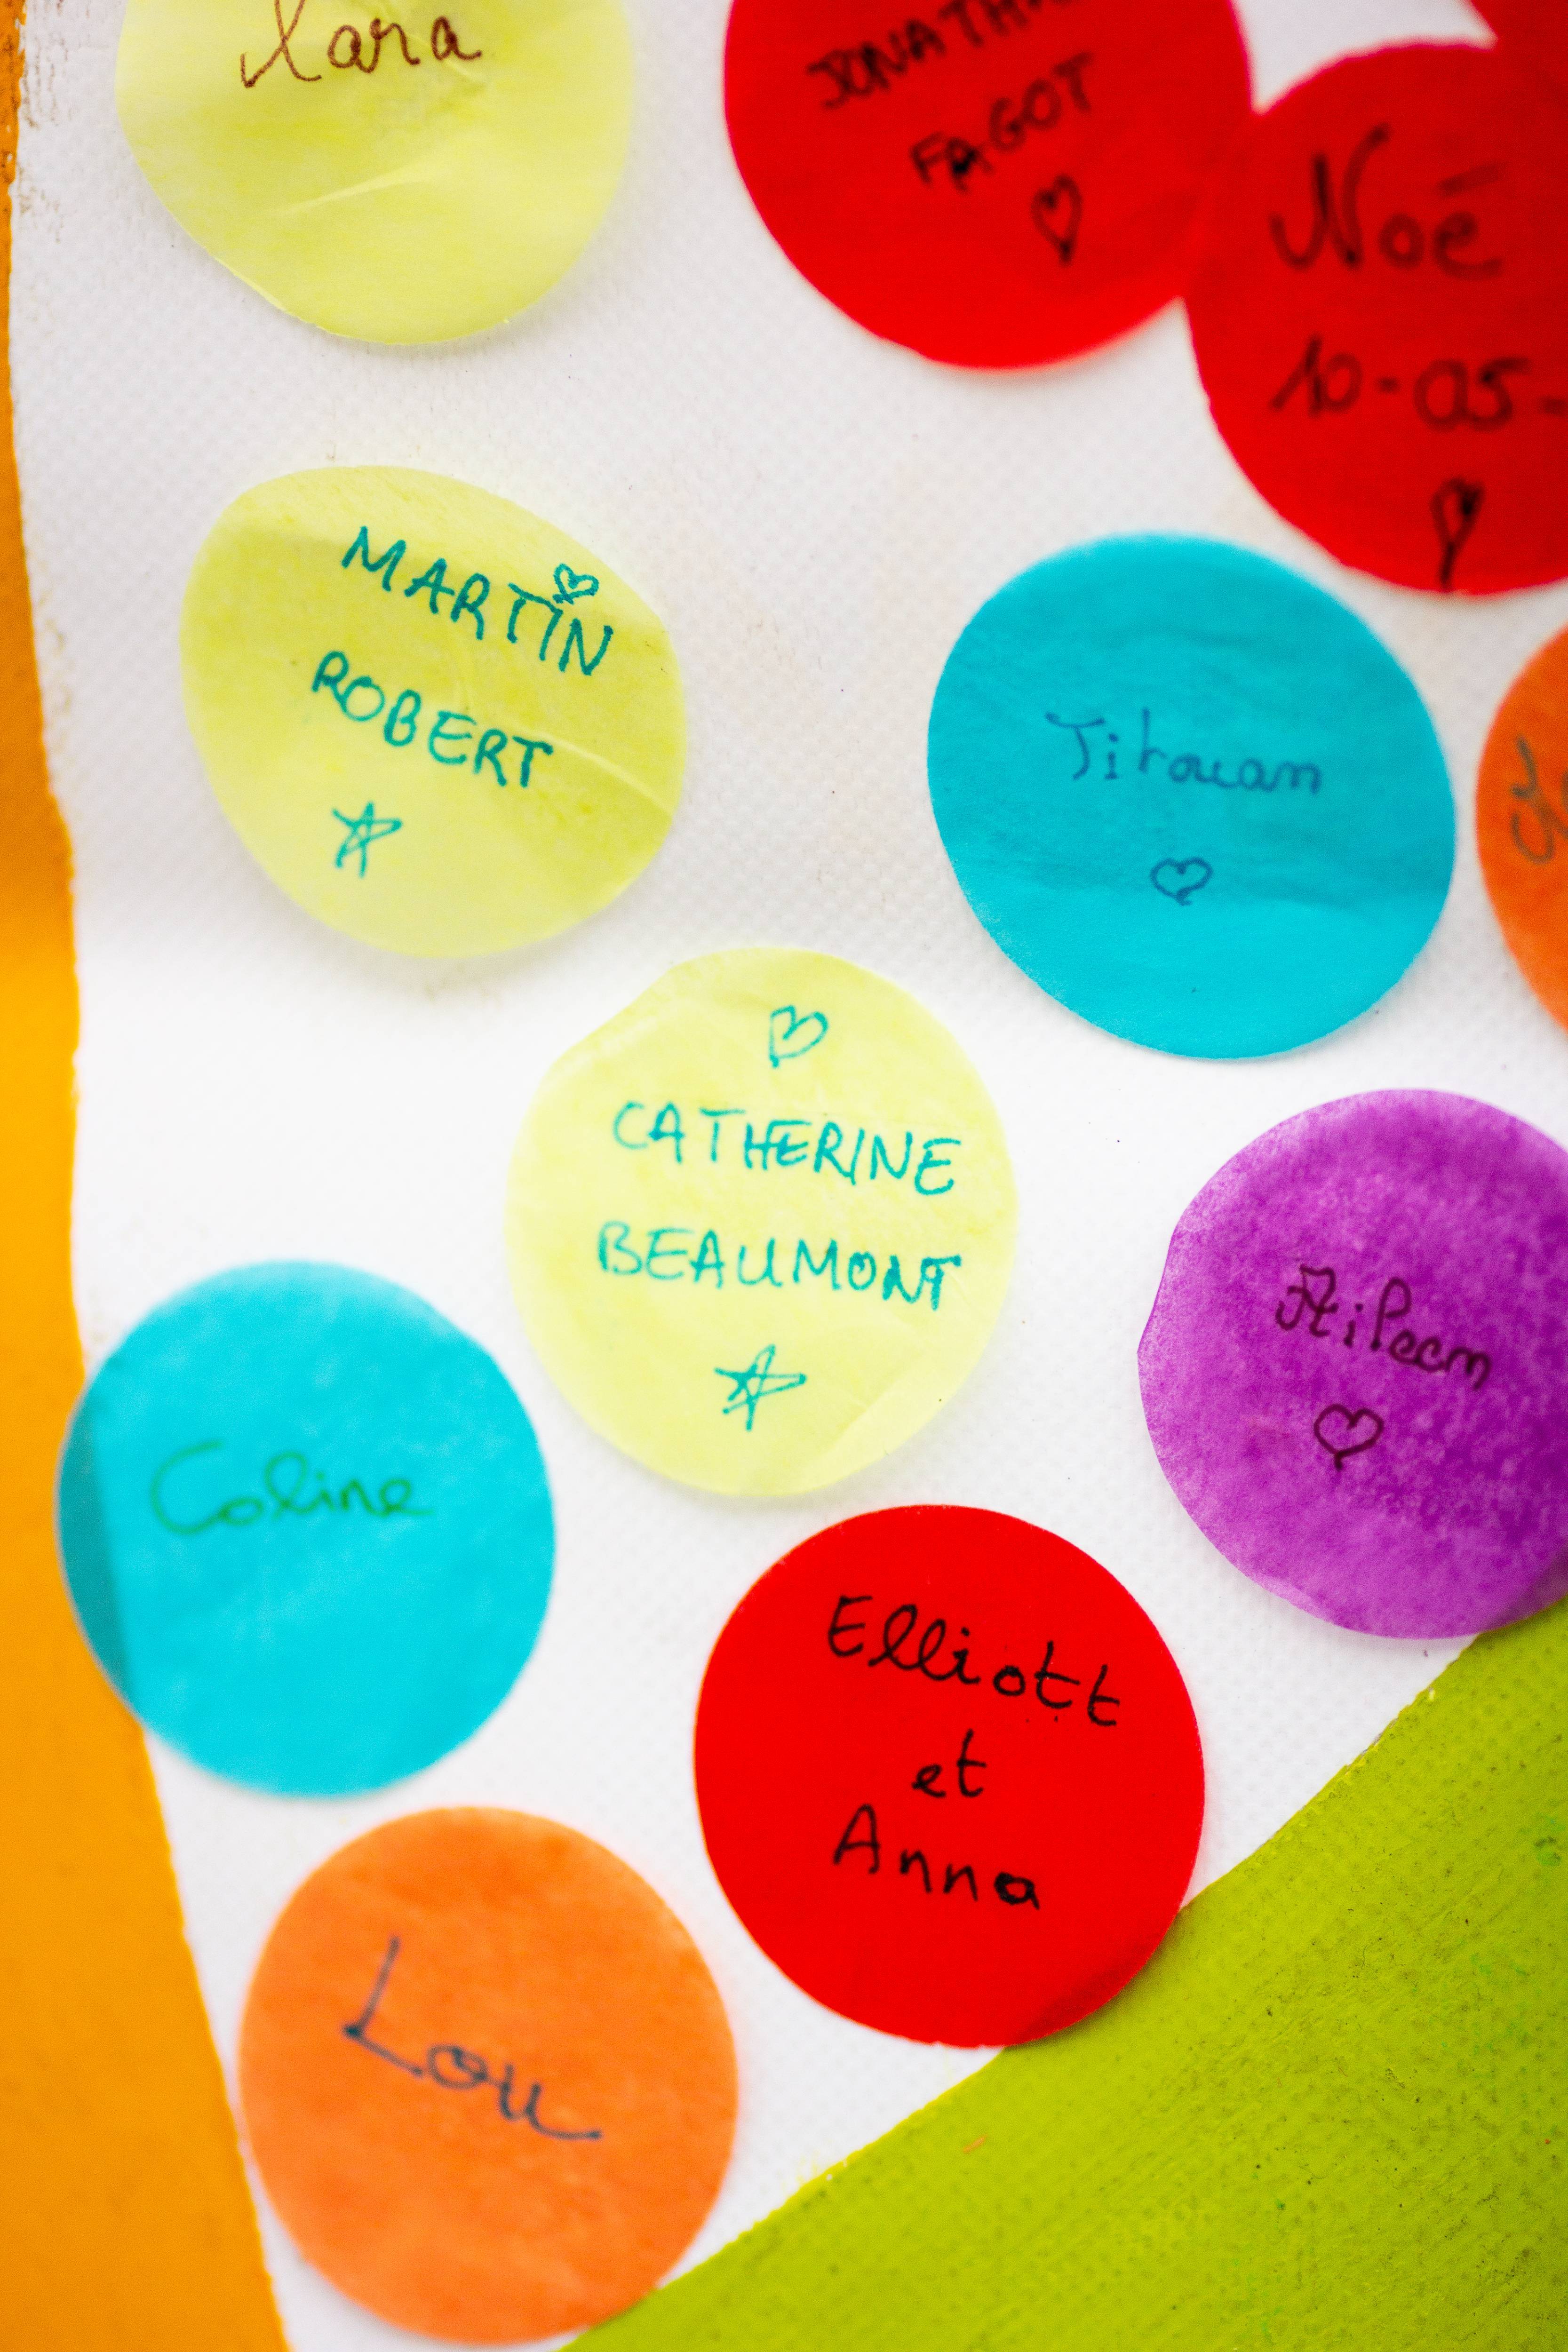 JONATHA
FAGOT
Noé
10-05-
MARTIN
ROBERT
Titouan
CATHERINE
BEAUMONT
Aileen
Coline
Elliott
et
Anna
Lou